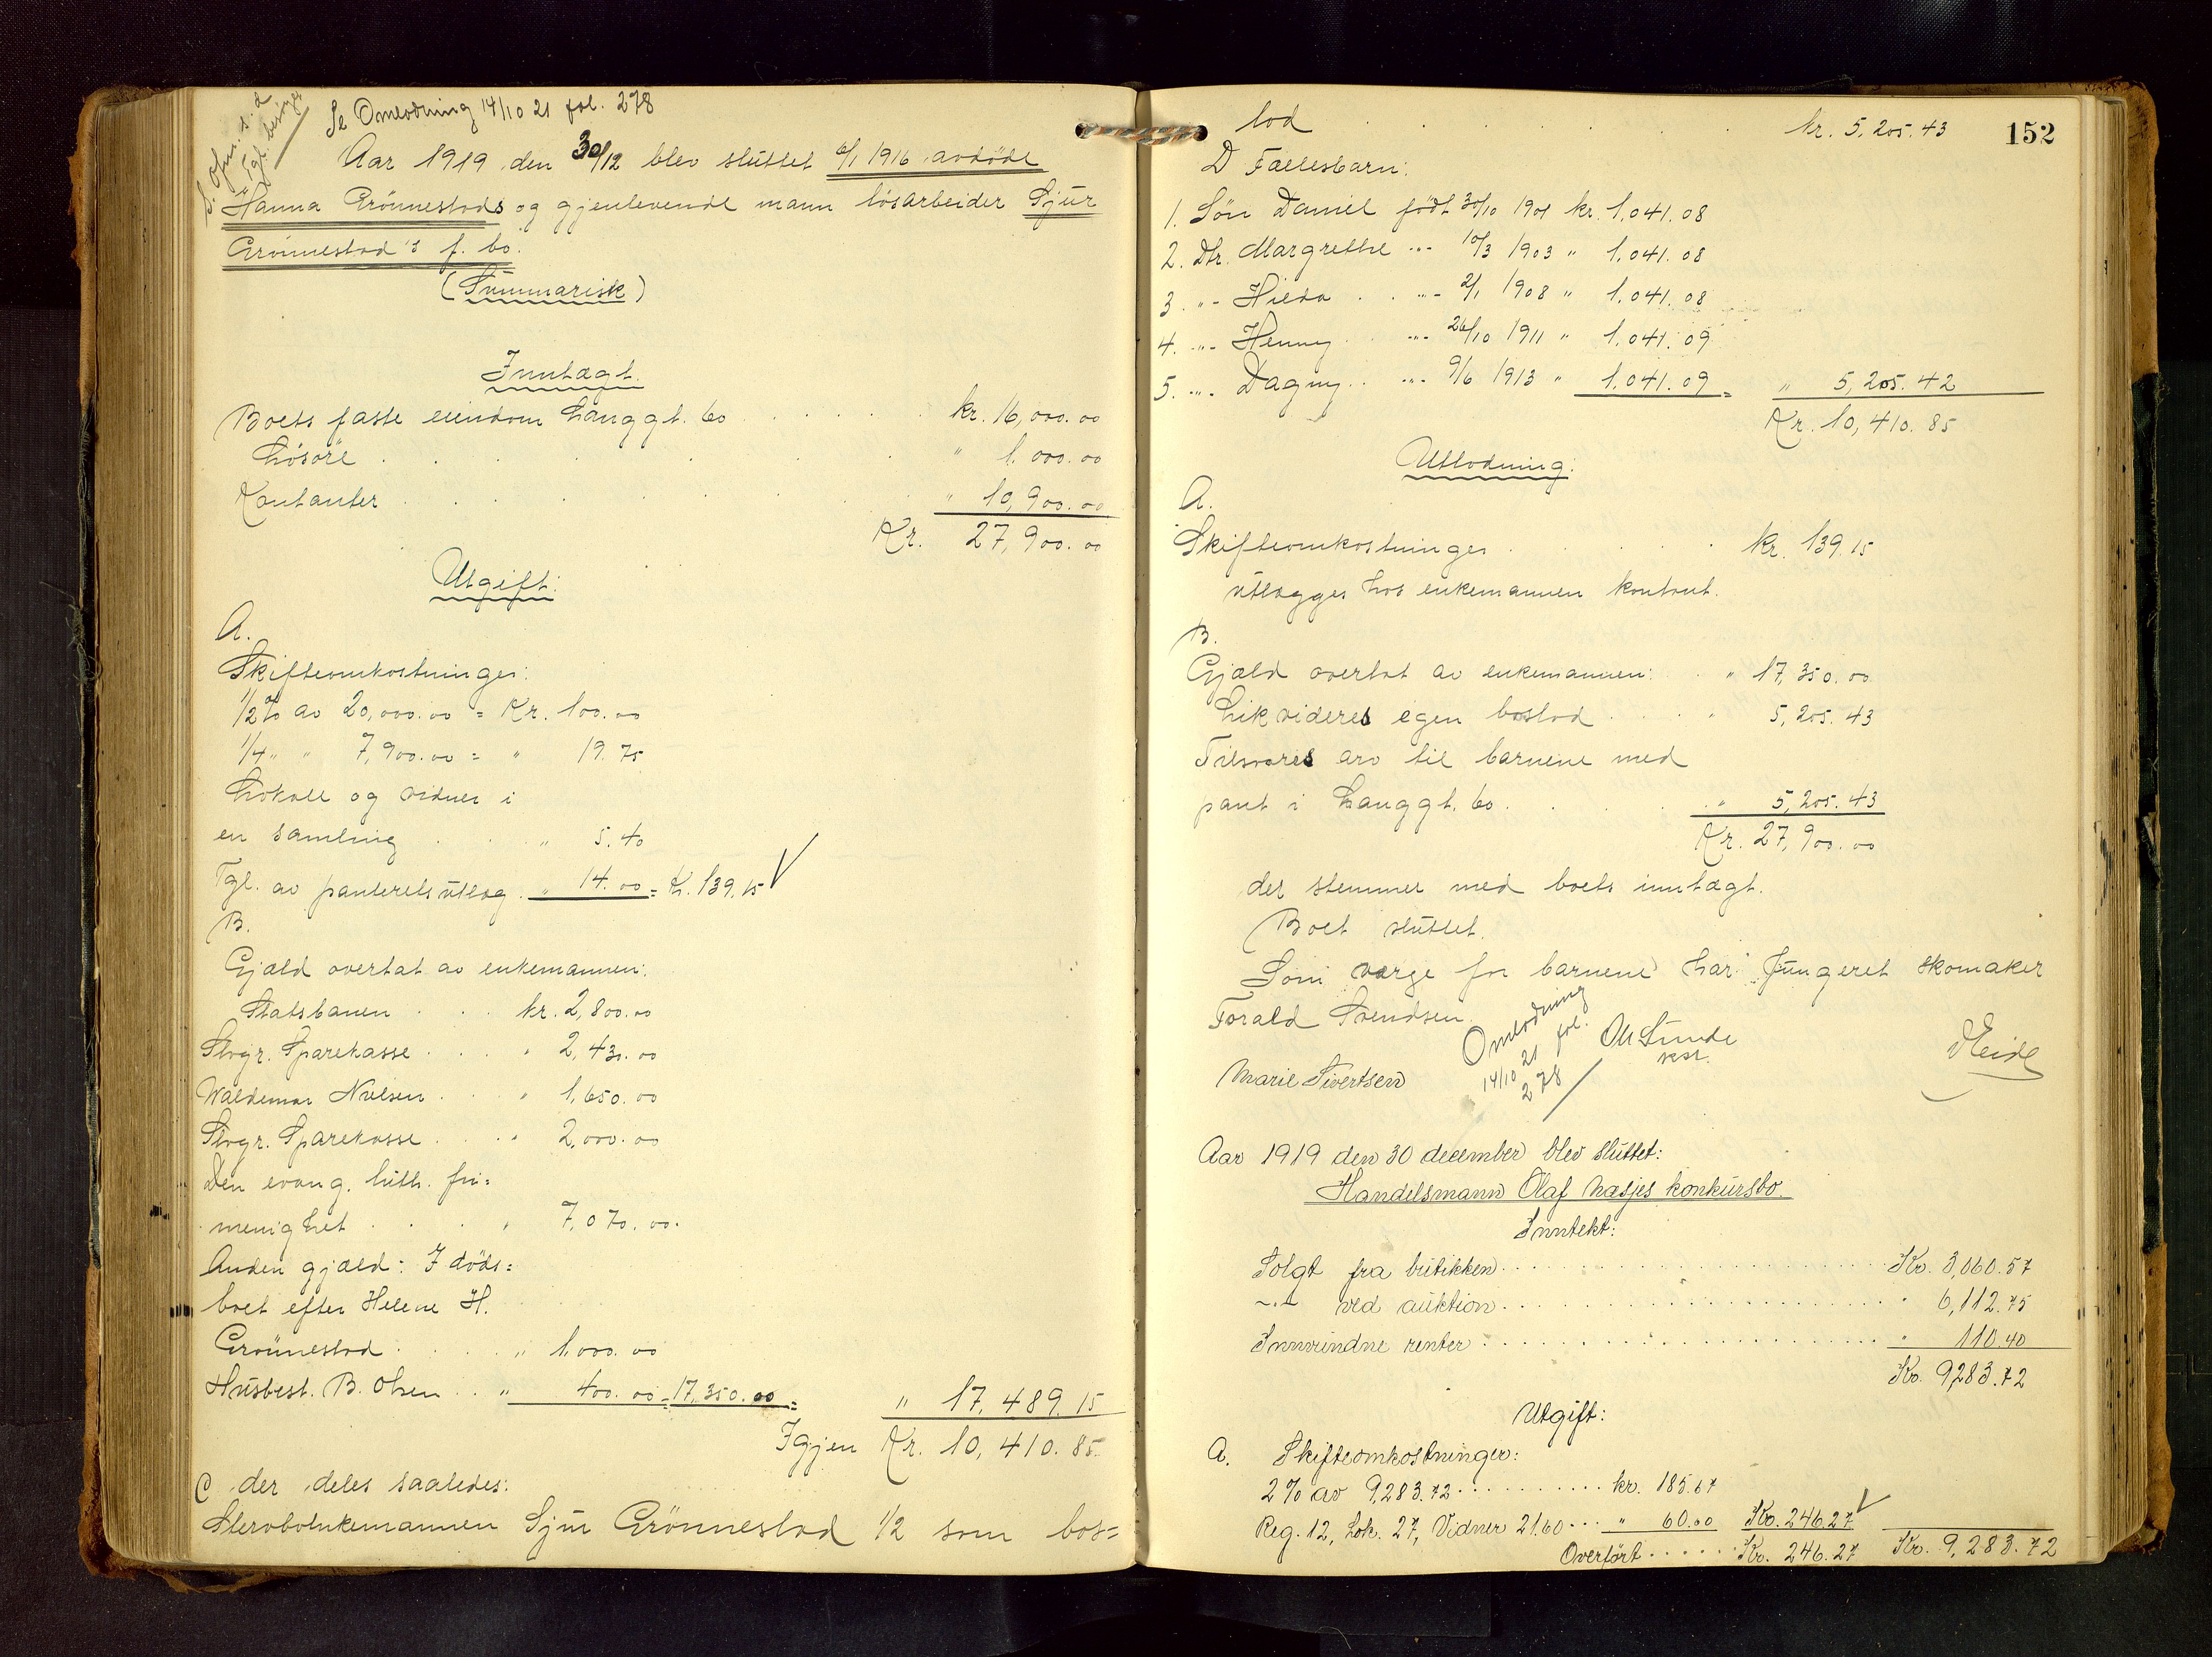 Se Omlodning 14/10 21 fol. 278
Aar 1919 den 30/12 blev sluttet 6/1 1916 avdöde
Hanna Grönnestads og gjenlevende mann lösarbeider Sjur
Grönnestad's f. bo.
(Summarisk)
Inntægt.
Boets faste eiendom Langgt. 60 kr. 16,000.00
Lösöre " 1.000.00
Kontanter " 10,900.00
Kr. 27,900.00
Utgift:
A.
Skifteomkostninger:
1/2% av 20,000.00 = Kr. 100.00
1/4 " " 7,900.00 = " 19.75
Lokale og vidner i
en samling " 5.40
Tgl. av panteretsutlæg " 14.00 = Kr. 139.15
B.
Gjæld overtat av enkemannen:
Statsbanen kr. 2,800.00
Stvgr. Sparekasse " 2,430.00
Waldemar Nielsen " 1,650.00
Stvgr. Sparekasse " 2,000.00
Den evang. luth. fri=
menighet " 7,070.00.
Anden gjæld: I döds=
boet efter Helene H.
Grönnestad " 1.000.00
Husbest. B. Olsen " 400.00 = 17,350.00 = " 17,489.15
Igjen Kr. 10,410.85
C der deles saaledes:
Stervboenkemannen Sjur Grönnestad 1/2 som bos=
lod kr. 5,205.43
152
D Fællesbarn:
1. Sön Daniel födt 30/10 1901 kr. 1.041.08
2. Dtr. Margrethe -"- 10/3 1903 " 1.041.08
3. -"- Hilda -"- 2/1 1908 " 1.041.08
4. -"- Henny -"- 26/10 1911 " 1.041.09
5. -"- Dagny -"- 9/6 1913 " 1.041.09 = " 5,205.42
Kr. 10,410.85
Utlodning:
A.
Skifteomkostninger kr. 139.15
utlægges hos enkemannen kontant.
B.
Gjæld overtat av enkemannen: " 17,350.00
Likvideres egen boslod " 5,205.43
Tilsvares arv til barnene med
pant i Langgt. 60 " 5,205.43
Kr. 27,900.00
der stemmer med boets inntægt.
Boet sluttet.
Som værge for barnene har fungeret skomaker
Torald Svendsen.
Omlodning
14/10 21 fol.
278
Ole Sunde
Marie Sivertsen
Aar 1919 den 30 december blev sluttet:
Handelsmann Olaf Næsjes konkursbo.
Inntekt:
Solgt fra butikken Kr. 3,060.57
-"- ved auktion " 6,112.75
Innvundne renter " 110.40
Kr. 9,283.72
Utgift:
A. Skifteomkostninger:
2% av 9,283.72 kr. 185.67
Reg. 12, Lok. 27, Vidner 21.60 " 60.60 Kr. 246.27
Overført Kr. 246.27 Kr. 9,283.72